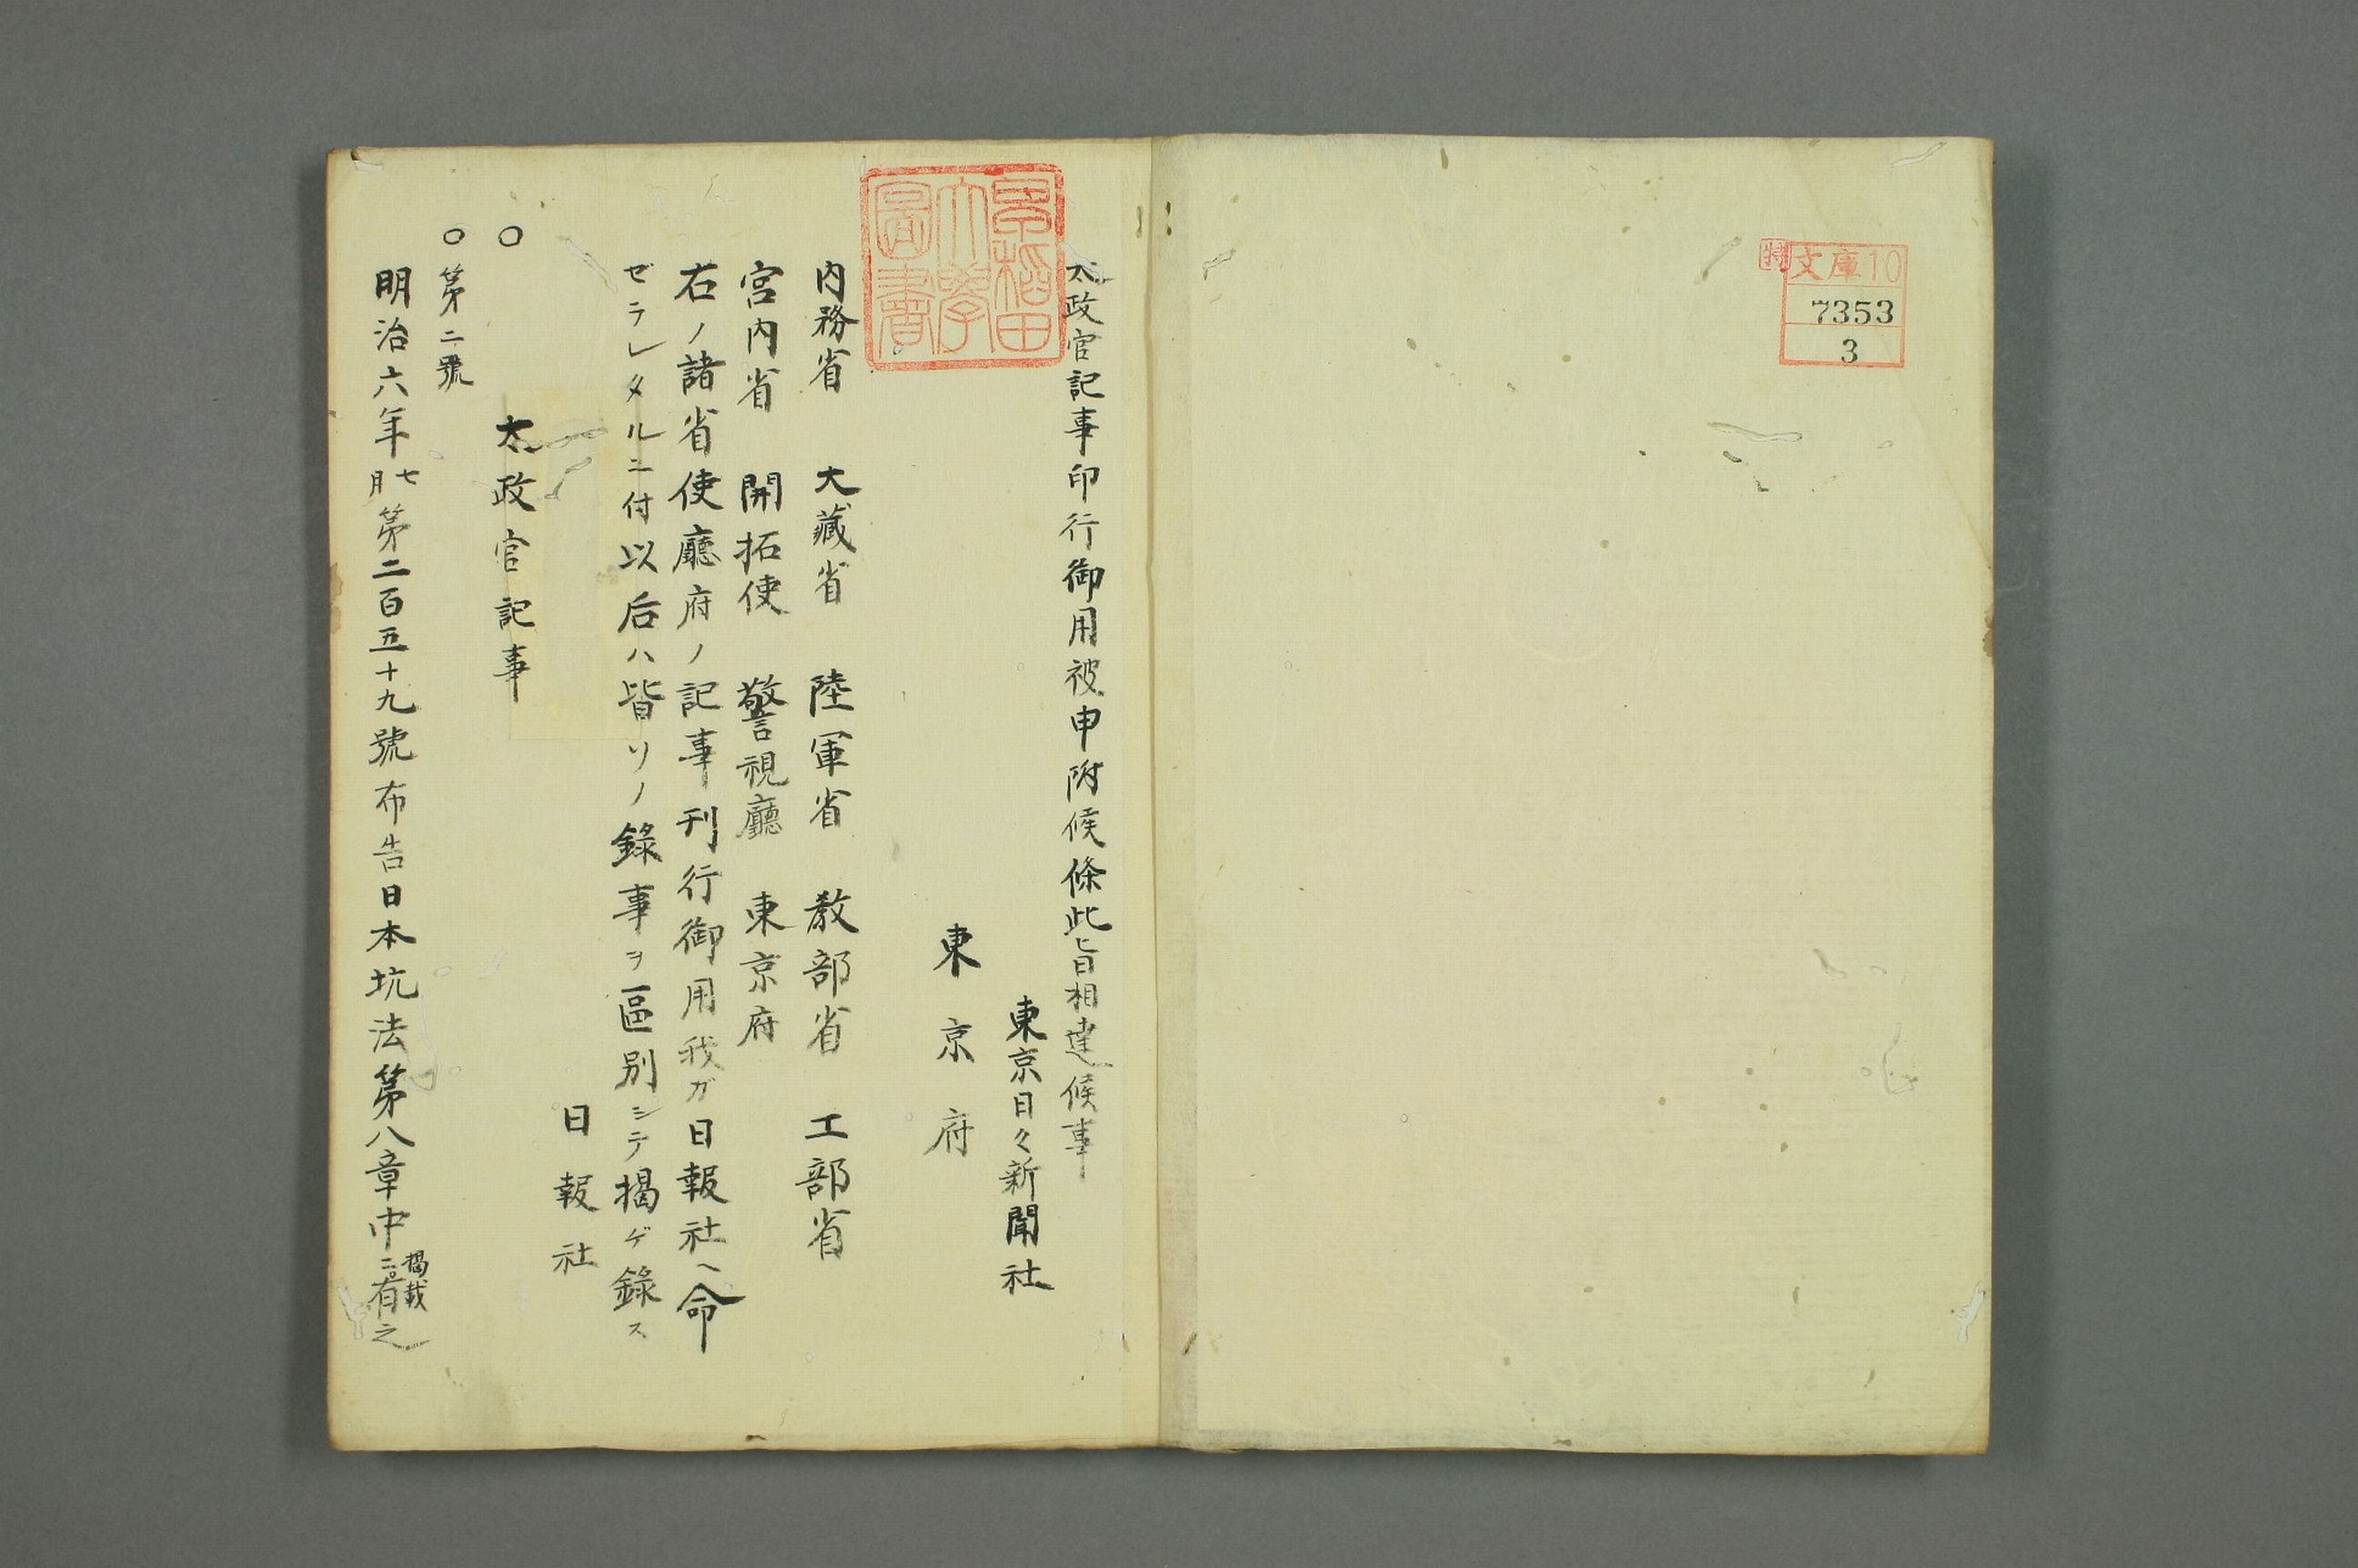 特
文庫10
7353
3
早稲田
大學
圖書
太政官記事印行御用被申附候條此旨相達候事
東京日々新聞社
東京府
内務省 大藏省 陸軍省 敎部省 工部省
宮内省 開拓使 警視廳 東京府
右ノ諸省使廳府ノ記事刊行御用我ガ日報社ヘ命
ゼラレタルニ付以后ハ皆ソノ錄事ヲ區別シテ揭ゲ錄ス
日報社
○ 太政官記事
○第二號
明治六年七月第二百五十九號布告日本坑法第八章中ニ揭載有之